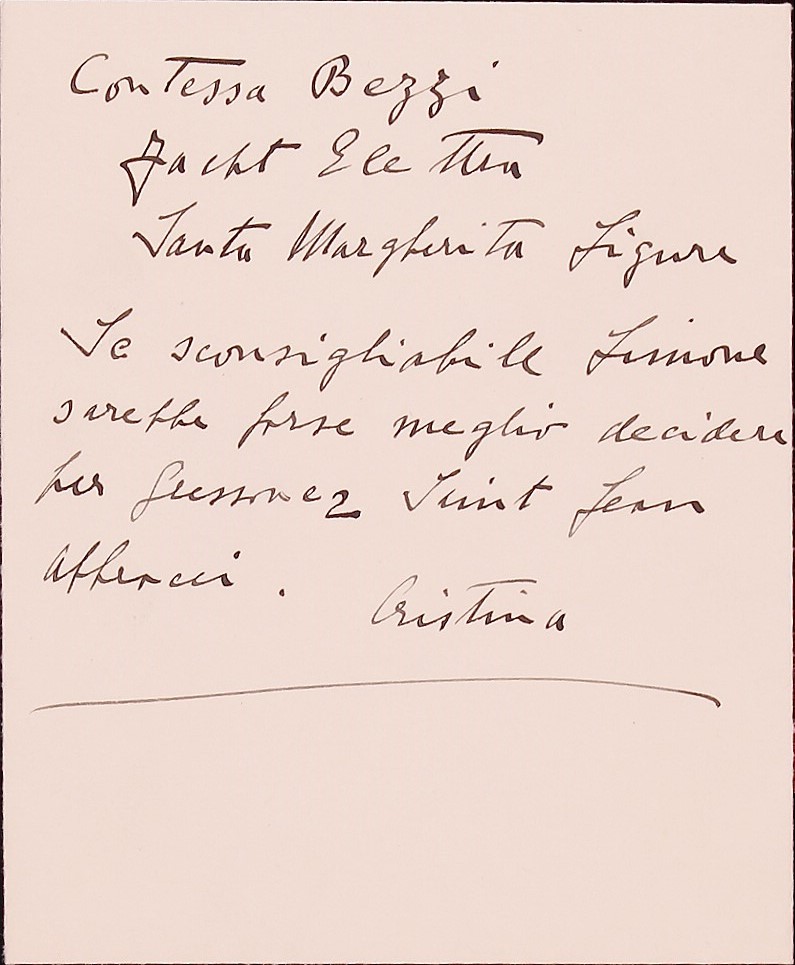 Contessa Bezzi
Yacht Elettra
Santa Margherita Ligure
Se sconsigliabile Limone
sarebbe forse meglio decidere
per Gressonez Saint Jean
abbracci.
Cristina